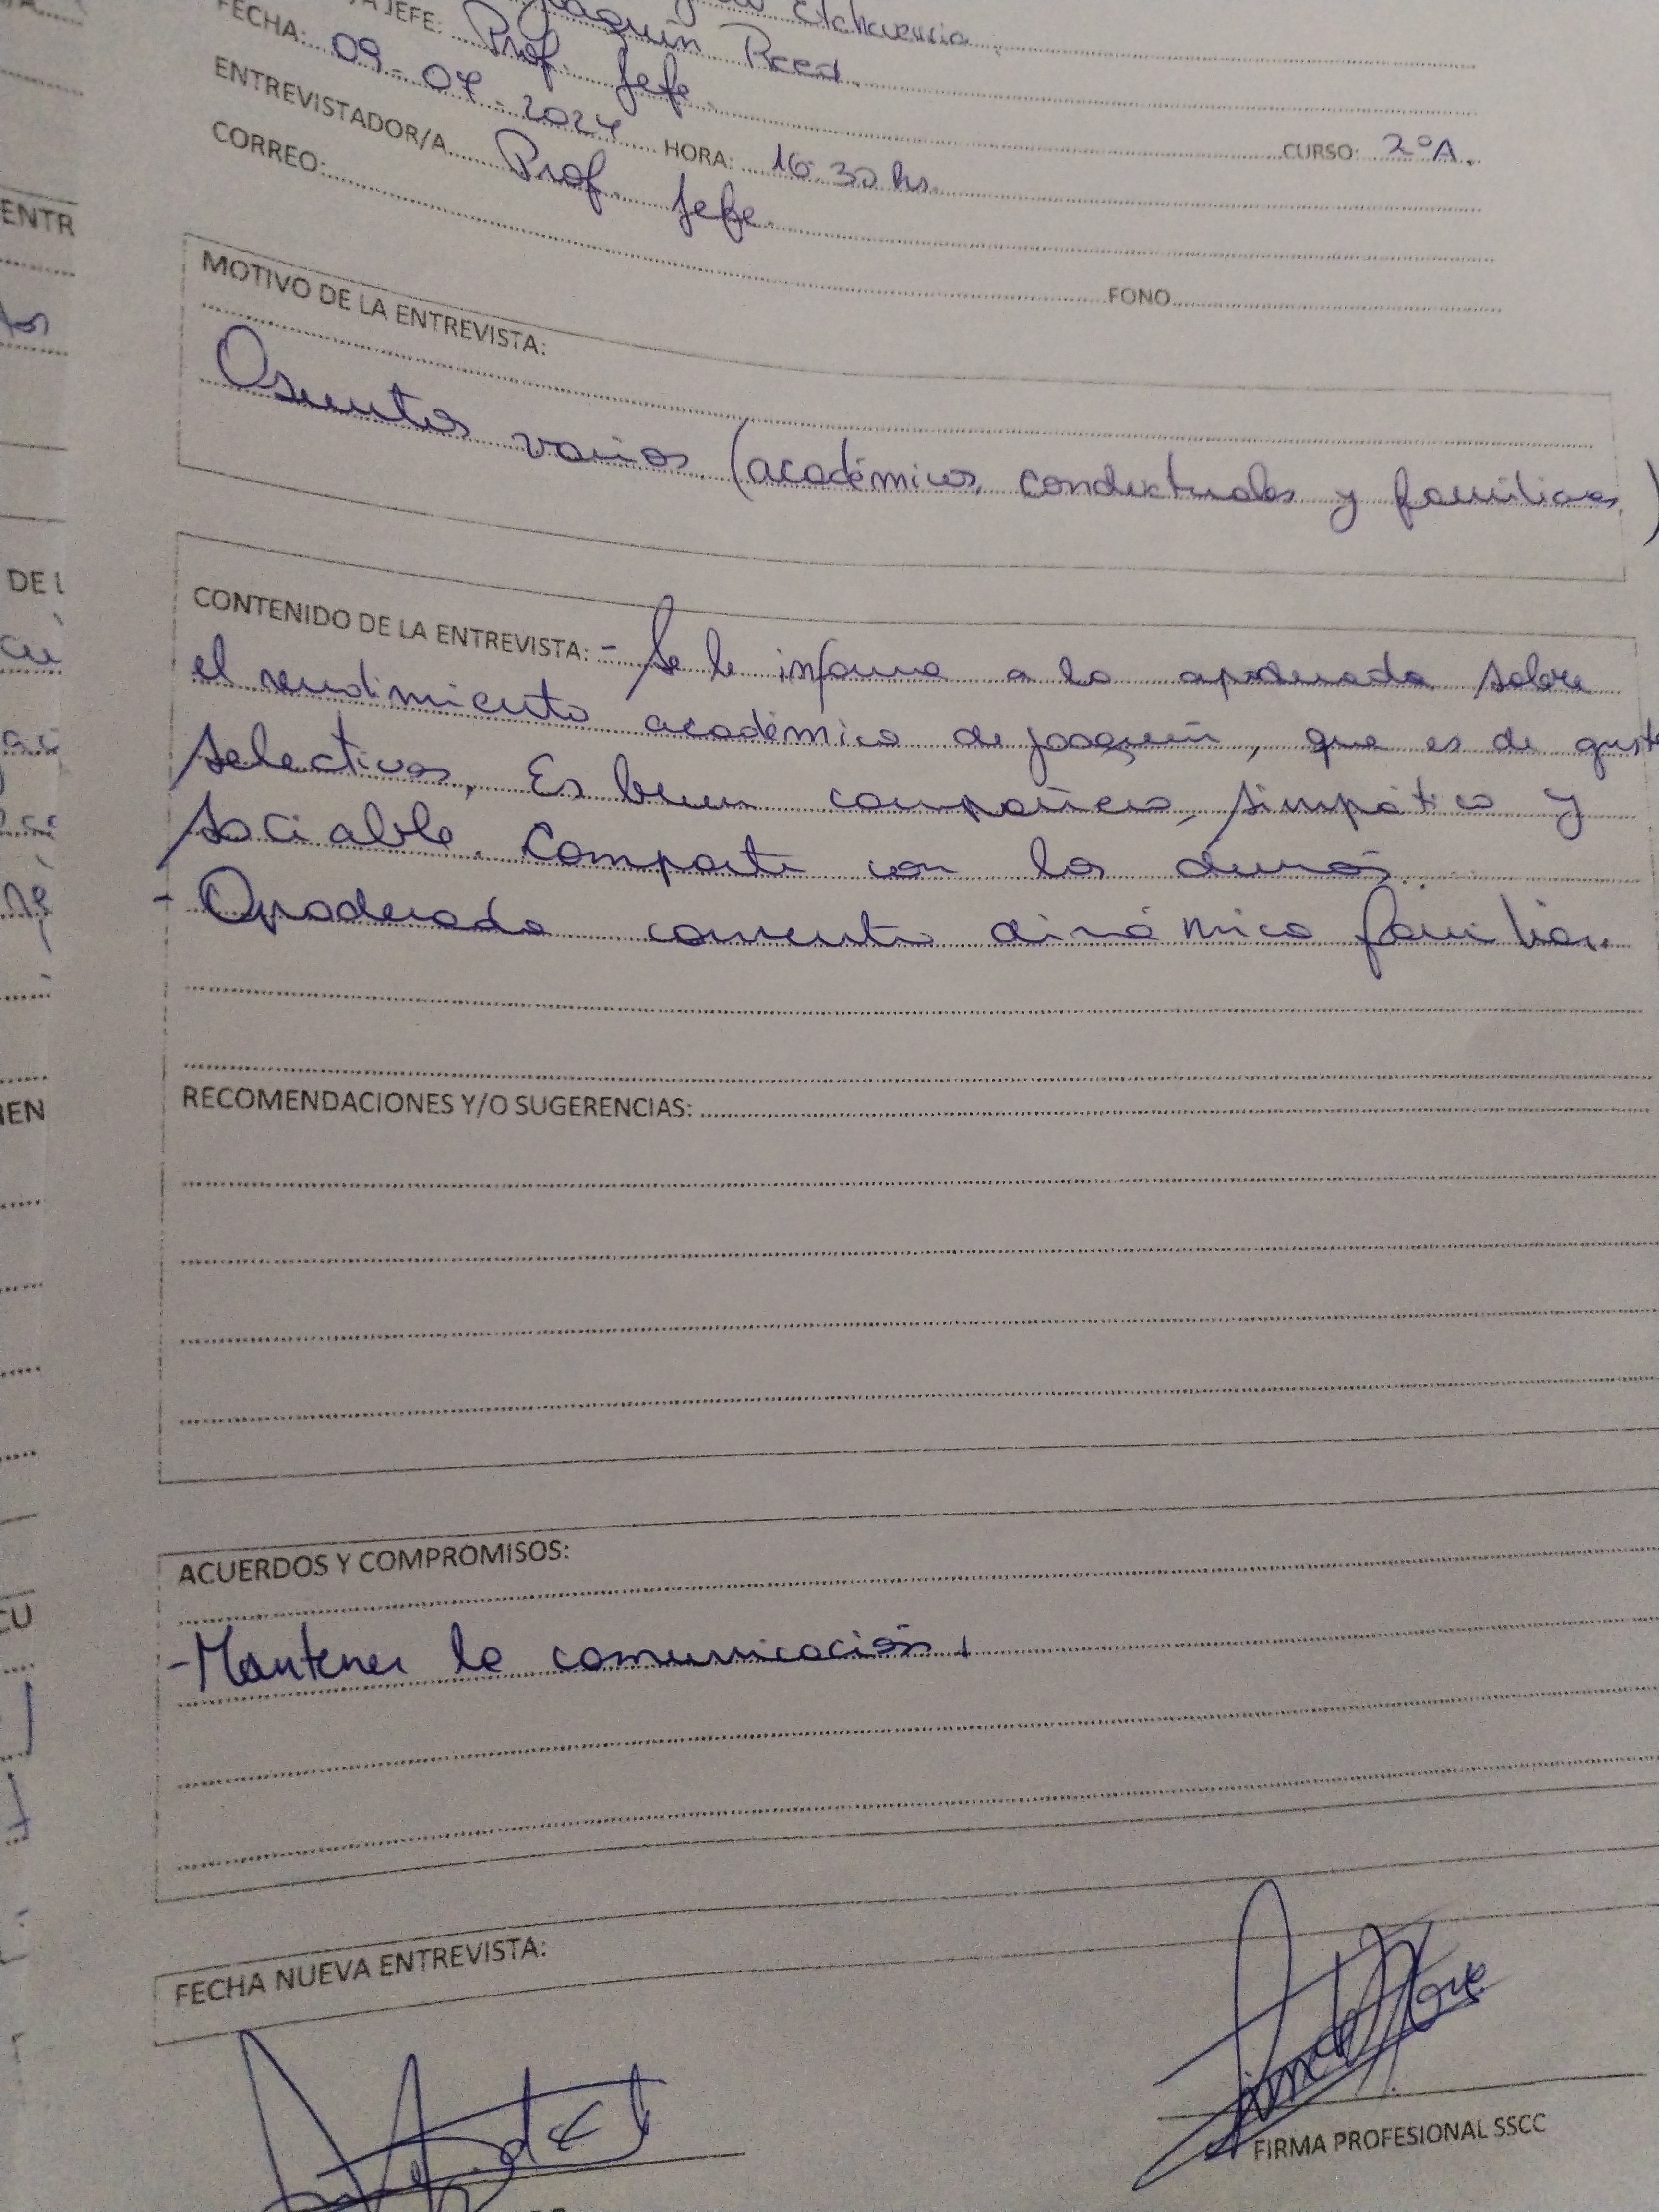 Etcheverria
Joaquín Reed.
A JEFE: Prof. Jefe. CURSO: 2°A.
FECHA: 09-07-2024 HORA: 16:30 hs.
ENTREVISTADOR/A Prof. Jefe.
CORREO: FONO
MOTIVO DE LA ENTREVISTA:
Asuntos varios (académicos, conductuales y familiares)
CONTENIDO DE LA ENTREVISTA: - Se le informa a la apoderada sobre
el rendimiento académico de Joaquín, que es de gusto
selectivos. Es buen compañero, simpático y
sociable. Comparte con los demás.
- Apoderada comenta dinámica familiar.
RECOMENDACIONES Y/O SUGERENCIAS:
ACUERDOS Y COMPROMISOS:
- Mantener la comunicación.
FECHA NUEVA ENTREVISTA:
FIRMA PROFESIONAL SSCC
ENTR
DE L
IEN
CU